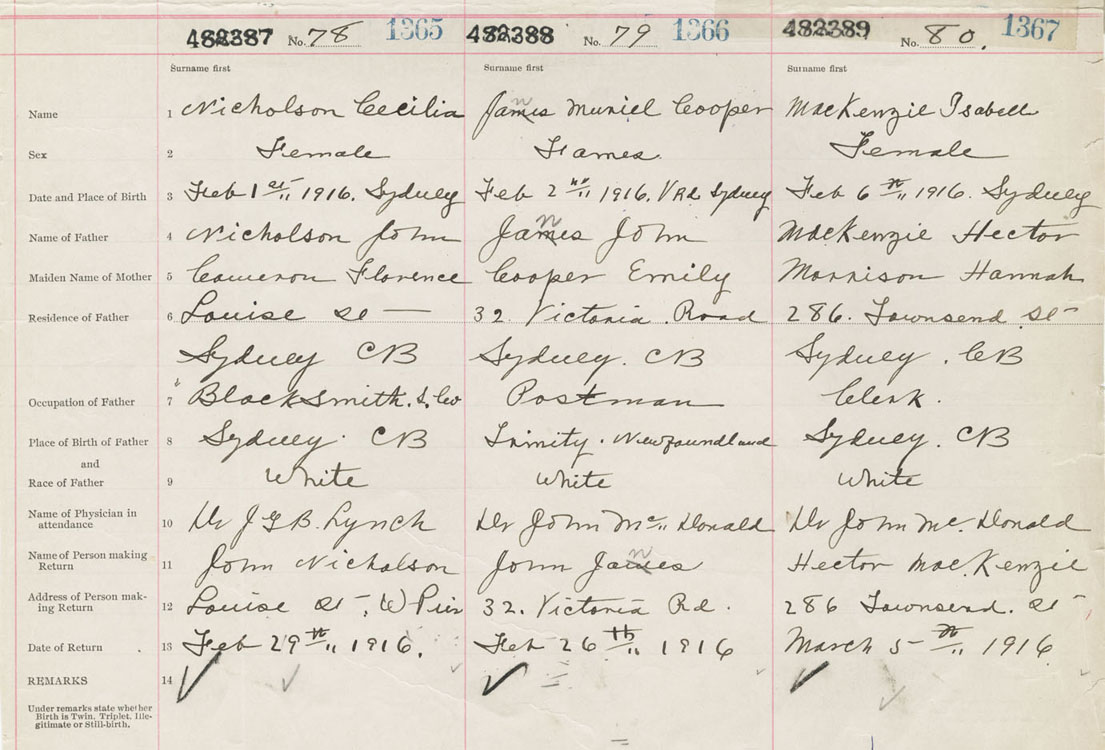 482387 No. 78 1365 482388 No. 79 1366 482389 No. 80. 1367
Surname first Surname first Surname first
Name 1 Nicholson Cecilia James n Muriel Cooper MacKenzie Isabell
Sex 2 Female Fames. Female
Date and Place of Birth 3 Feb 1st 1916. Sydney Feb 2nd 1916, V Rd Sydney Feb 6th 1916. Sydney
Name of Father 4 Nicholson John James n John MacKenzie Hector
Maiden Name of Mother 5 Cameron Florence Cooper Emily Morrison Hannah
Residence of Father 6 Louise St — 32. Victoria Road 286. Townsend St
Sydney CB Sydney. CB Sydney. CB
Occupation of Father 7 Blacksmith. S. Co Postman Clerk.
Place of Birth of Father 8 Sydney. CB Trinity. Newfoundland Sydney. CB
and
Race of Father 9 White White White
Name of Physician in
attendance 10 Dr J G B. Lynch Dr John Mc Donald Dr John Mc. Donald
Name of Person making
Return 11 John Nicholson John James n Hector MacKenzie
Address of Person mak-
ing Return 12 Louise St, W Pier 32. Victoria Rd. 286 Townsend. St
Date of Return 13 Feb 29th 1916. Feb 26th 1916 March 5th 1916
REMARKS 14
Under remarks state whether
Birth is Twin, Triplet, Ille-
gitimate or Still-birth.